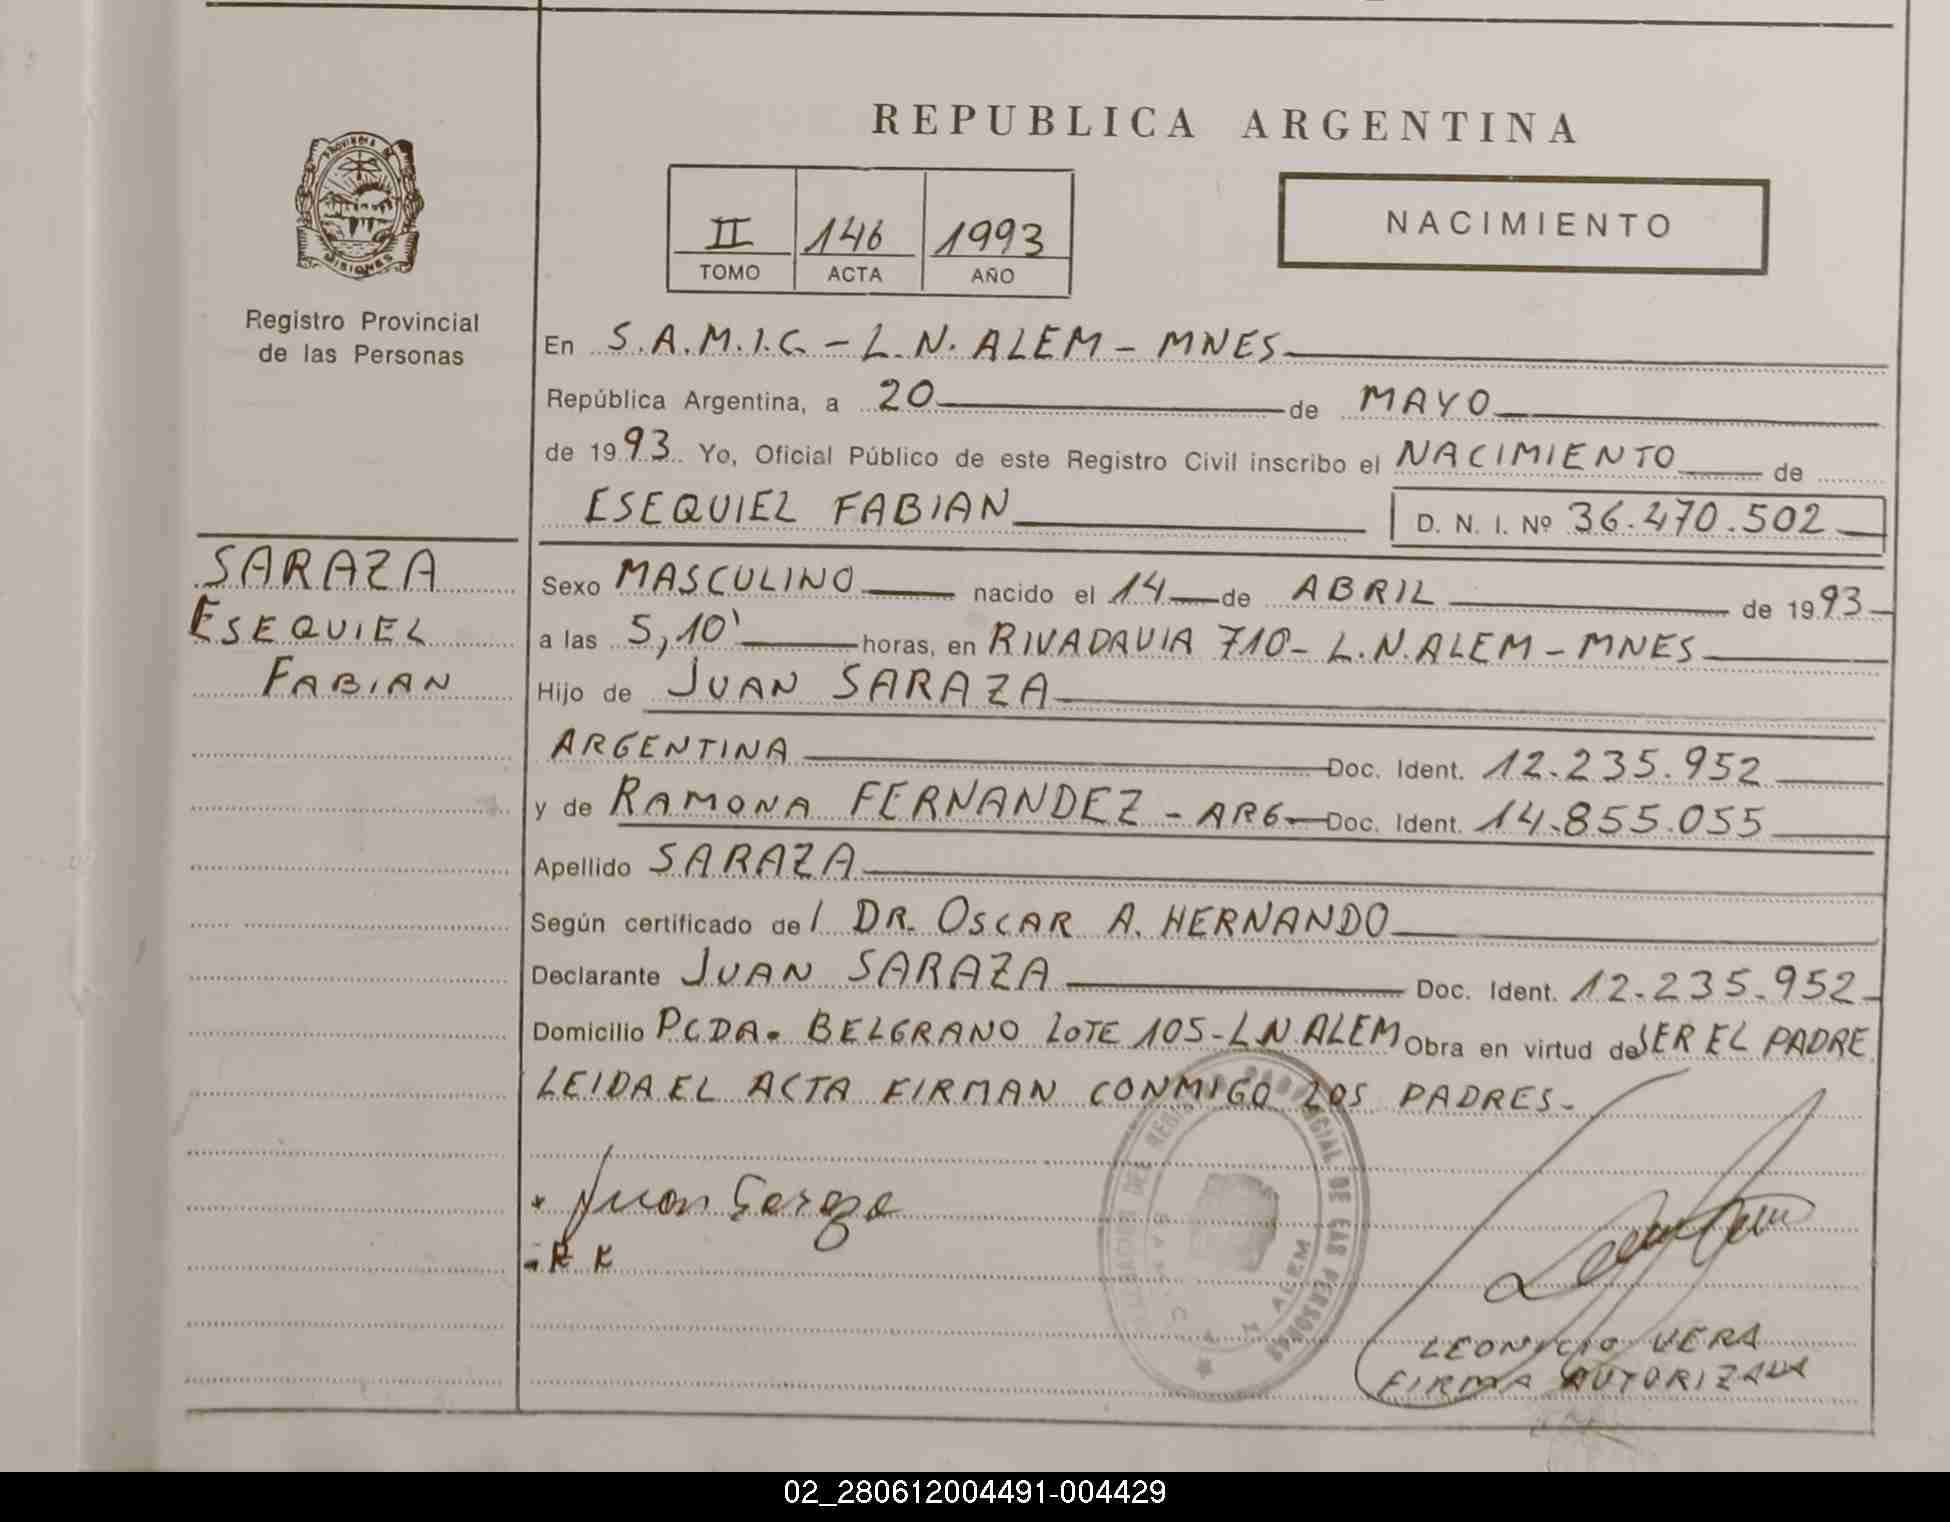 REPUBLICA ARGENTINA
PROVINCIA DE
MISIONES
Registro Provincial
de las Personas
II 146 1993
TOMO ACTA AÑO
NACIMIENTO
En S.A.M.I.C. - L.N. ALEM - MNES
República Argentina, a 20 de MAYO
de 1993 Yo, Oficial Público de este Registro Civil inscribo el NACIMIENTO de
ESEQUIEL FABIAN D. N. I. Nº 36.470.502
SARAZA
ESEQUIEL
FABIAN
Sexo MASCULINO nacido el 14 de ABRIL de 1993
a las 5,10' horas, en RIVADAVIA 710 - L.N. ALEM - MNES
Hijo de JUAN SARAZA
ARGENTINA Doc. Ident. 12.235.952
y de RAMONA FERNANDEZ - ARG Doc. Ident. 14.855.055
Apellido SARAZA
Según certificado del DR. OSCAR A. HERNANDO
Declarante JUAN SARAZA Doc. Ident. 12.235.952
Domicilio PCDA. BELGRANO LOTE 105 - L N ALEM Obra en virtud de SER EL PADRE
LEIDA EL ACTA FIRMAN CONMIGO LOS PADRES.
Juan Saraza
LEONICIO VERA
FIRMA AUTORIZADA
PROVINCIAL DE LAS PERSONAS
ALEM
02_280612004491-004429